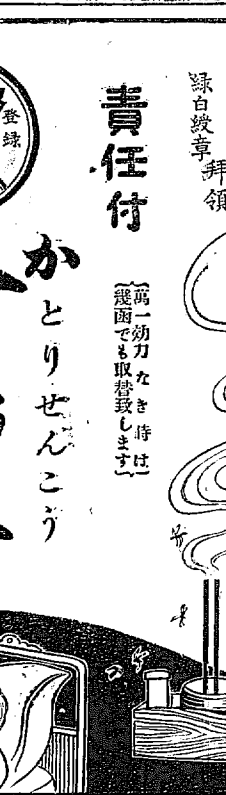 緑白綬章
拝領
責任付
萬一効力なき時は
幾函でも取替致します
かとりせんこう
登録